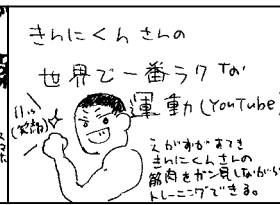 きんにくんさんの
世界で一番ラクな
運動(YouTube)
(笑顔)
えがおがすてき
きんにくんさんの
筋肉をガン見しながら
トレーニングできる。